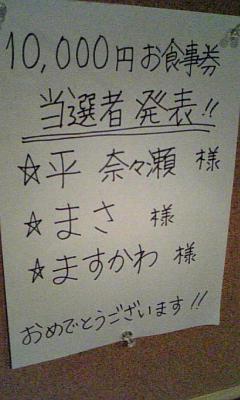 10,000円お食事券
当選者 発表!!
☆平 奈々瀬 様
☆まさ 様
☆ますかわ 様
おめでとうございます!!